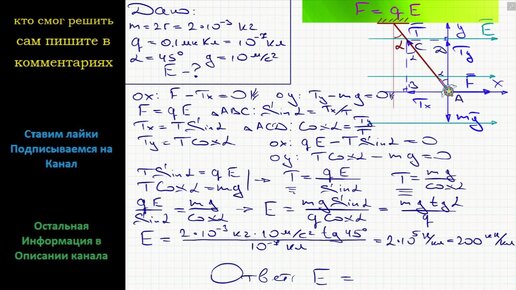 кто смог решить
сам пишите в
комментариях
Ставим лайки
Подписываемся на
Канал
Остальная
Информация в
Описании канала
Дано:
m=2г=2·10⁻³ кг
q=0,1мкКл=10⁻⁷Кл
α=45° g=10м/с²
E-?
F=qE
T y E
α C α Ty
α F x
Tx A
mg
ox: F-Tx=0 oy: Ty-mg=0
F=qE △ABC: Sinα=Tx/T
Tx=TSinα △ACD: Cosα=Ty/T
Ty=TCosα ox: qE-TSinα=0
oy: TCosα-mg=0
TSinα=qE
TCosα=mg | → T=qE/Sinα T=mg/Cosα
qE/Sinα=mg/Cosα → E=mgSinα/qCosα=mgtgα/q
E=2·10⁻³кг·10м/с²tg45°/10⁻⁷Кл=2·10⁵Н/Кл=200кН/Кл
Ответ: E=